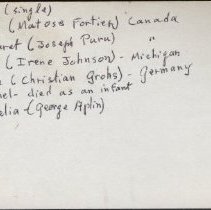 (single)
(Matoss Fortier) Canada
ret (Joseph Puru) "
( Irene Johnson) - Michigan
(Christian Grohs) - Germany
el- died as an infant
lia - (George Aplin)